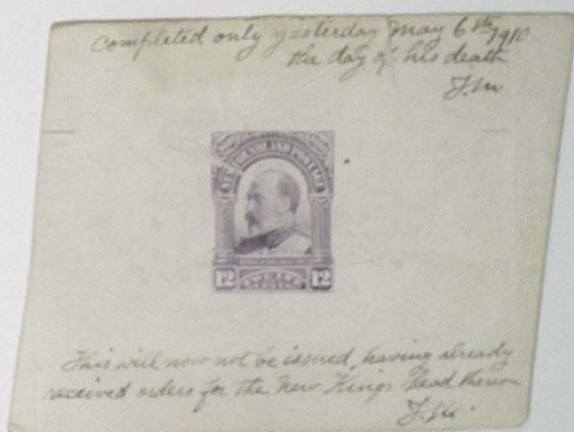 Completed only yesterday May 6th 1910
the day of his death
NEWFOUNDLAND POSTAGE
12 TWELVE 12
This will now not be issued, having already
received orders for the New Kings Head thereon